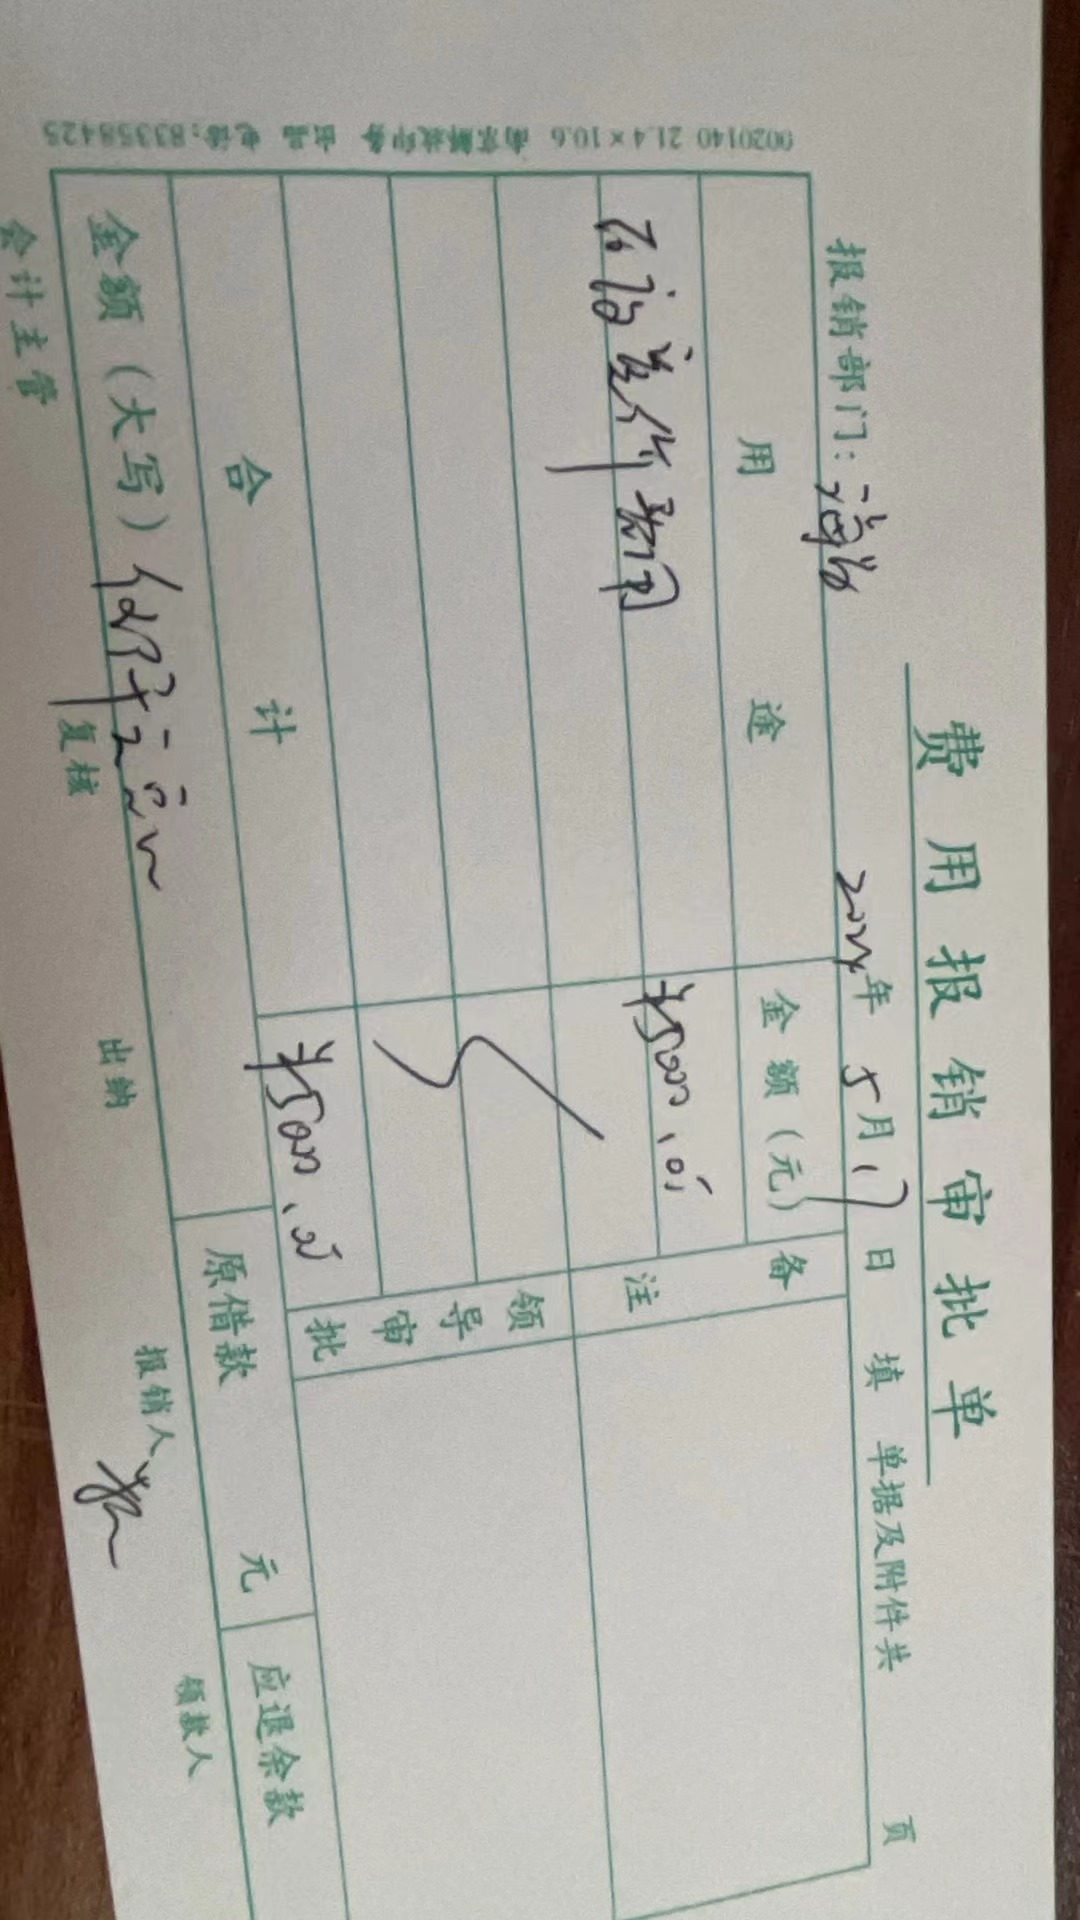 费用报销审批单
报销部门： 2024年 5月 17日 填 单据及附件共 页
用途 金额（元） 备注
¥5000.00
领导审批
合计 ¥5000.00
金额（大写）伍仟元 原借款 元 应退余款
会计主管 复核 出纳 报销人 领款人
0020140 21.4×10.6 南京解放印务 出品 电话：83358425